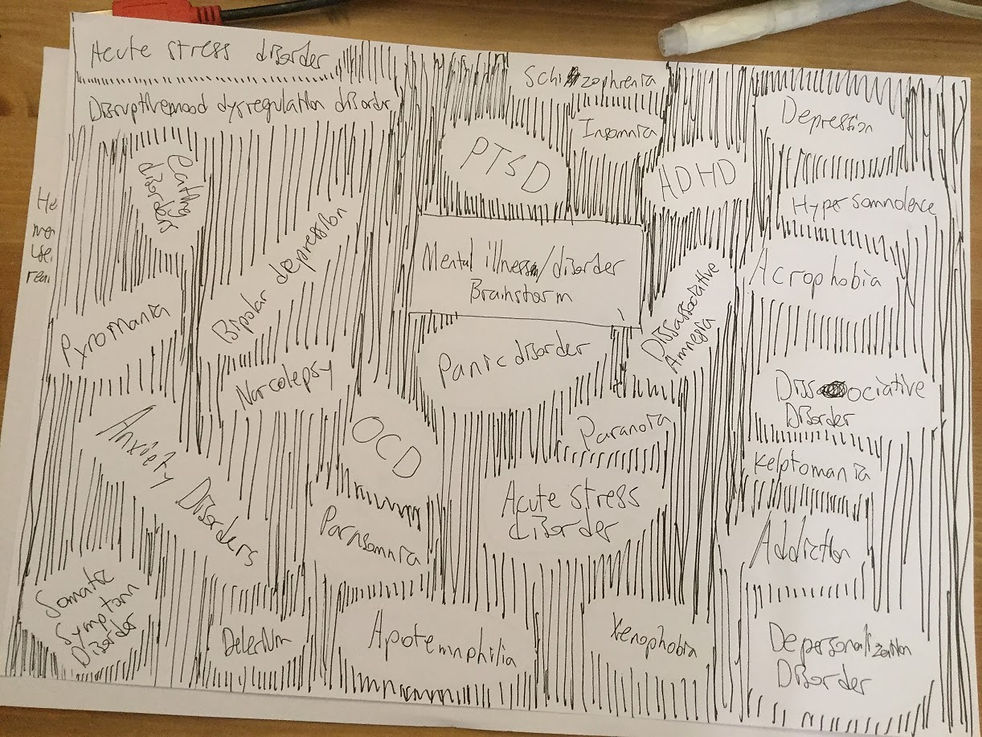 Acute stress disorder
Schizophrenia
Disruptivemood dysregulation disorder
Insomnia
Depression
PTSD
ADHD
Eating
disorders
Hypersomnolence
Bipolar depression
Mental illness/disorder
Brainstorm
Acrophobia
Pyromania
Dissassociative
Amnesia
Panic disorder
Narcolepsy
Dissociative
Disorder
OCD
Paranoia
Anxiety Disorders
kelptomania
Acute stress
disorder
Parasomnia
Addiction
Somatic
Symptom
Disorder
Delerium
Apotemnphilia
Xenophobia
Depersonalization
Disorder